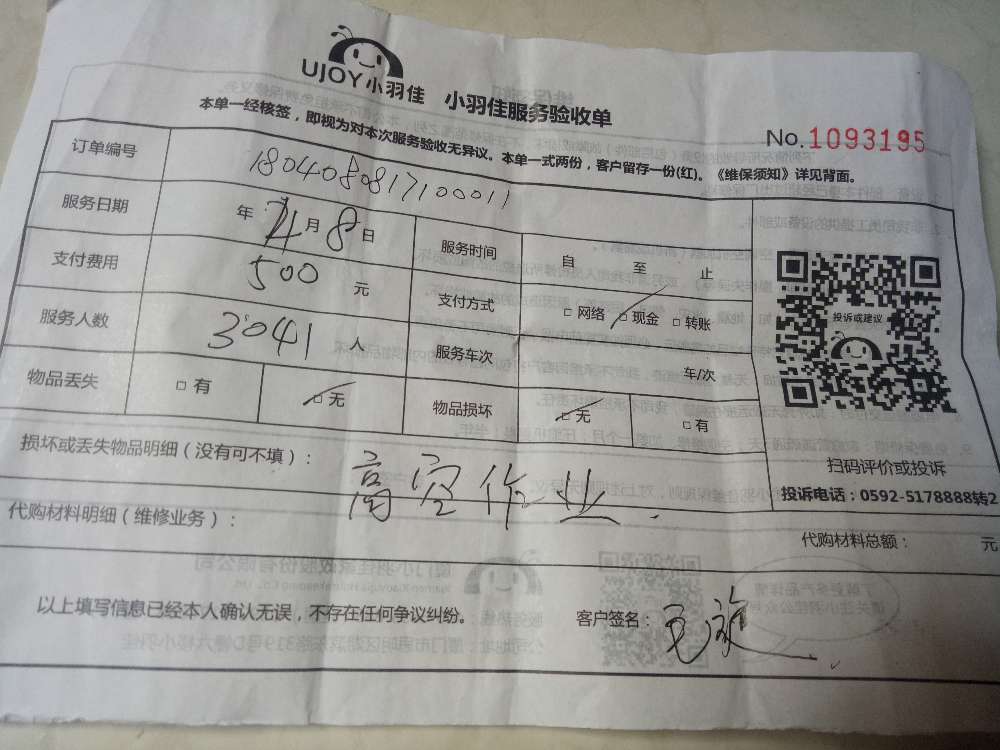 UJOY小羽佳 小羽佳服务验收单
本单一经核签，即视为对本次服务验收无异议。本单一式两份，客户留存一份(红)。《维保须知》详见背面。
No.1093195
订单编号 180408081710001 1
服务日期 年 4月 8日 服务时间 自 至 止
支付费用 500 元 支付方式 □网络 □现金 □转账
服务人数 3041 人 服务车次 车/次
物品丢失 □有 □无 物品损坏 □无 □有
投诉或建议
扫码评价或投诉
投诉电话：0592-5178888转2
损坏或丢失物品明细（没有可不填）： 高空作业.
代购材料明细（维修业务）： 代购材料总额： 元
以上填写信息已经本人确认无误，不存在任何争议纠纷。 客户签名：